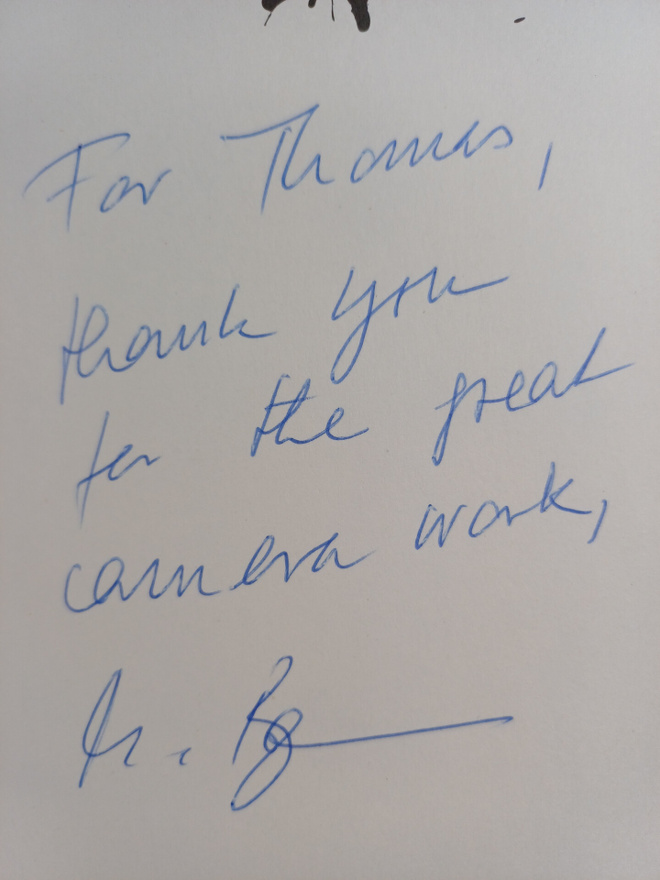 For Thomas,
thank you
for the great
camera work,